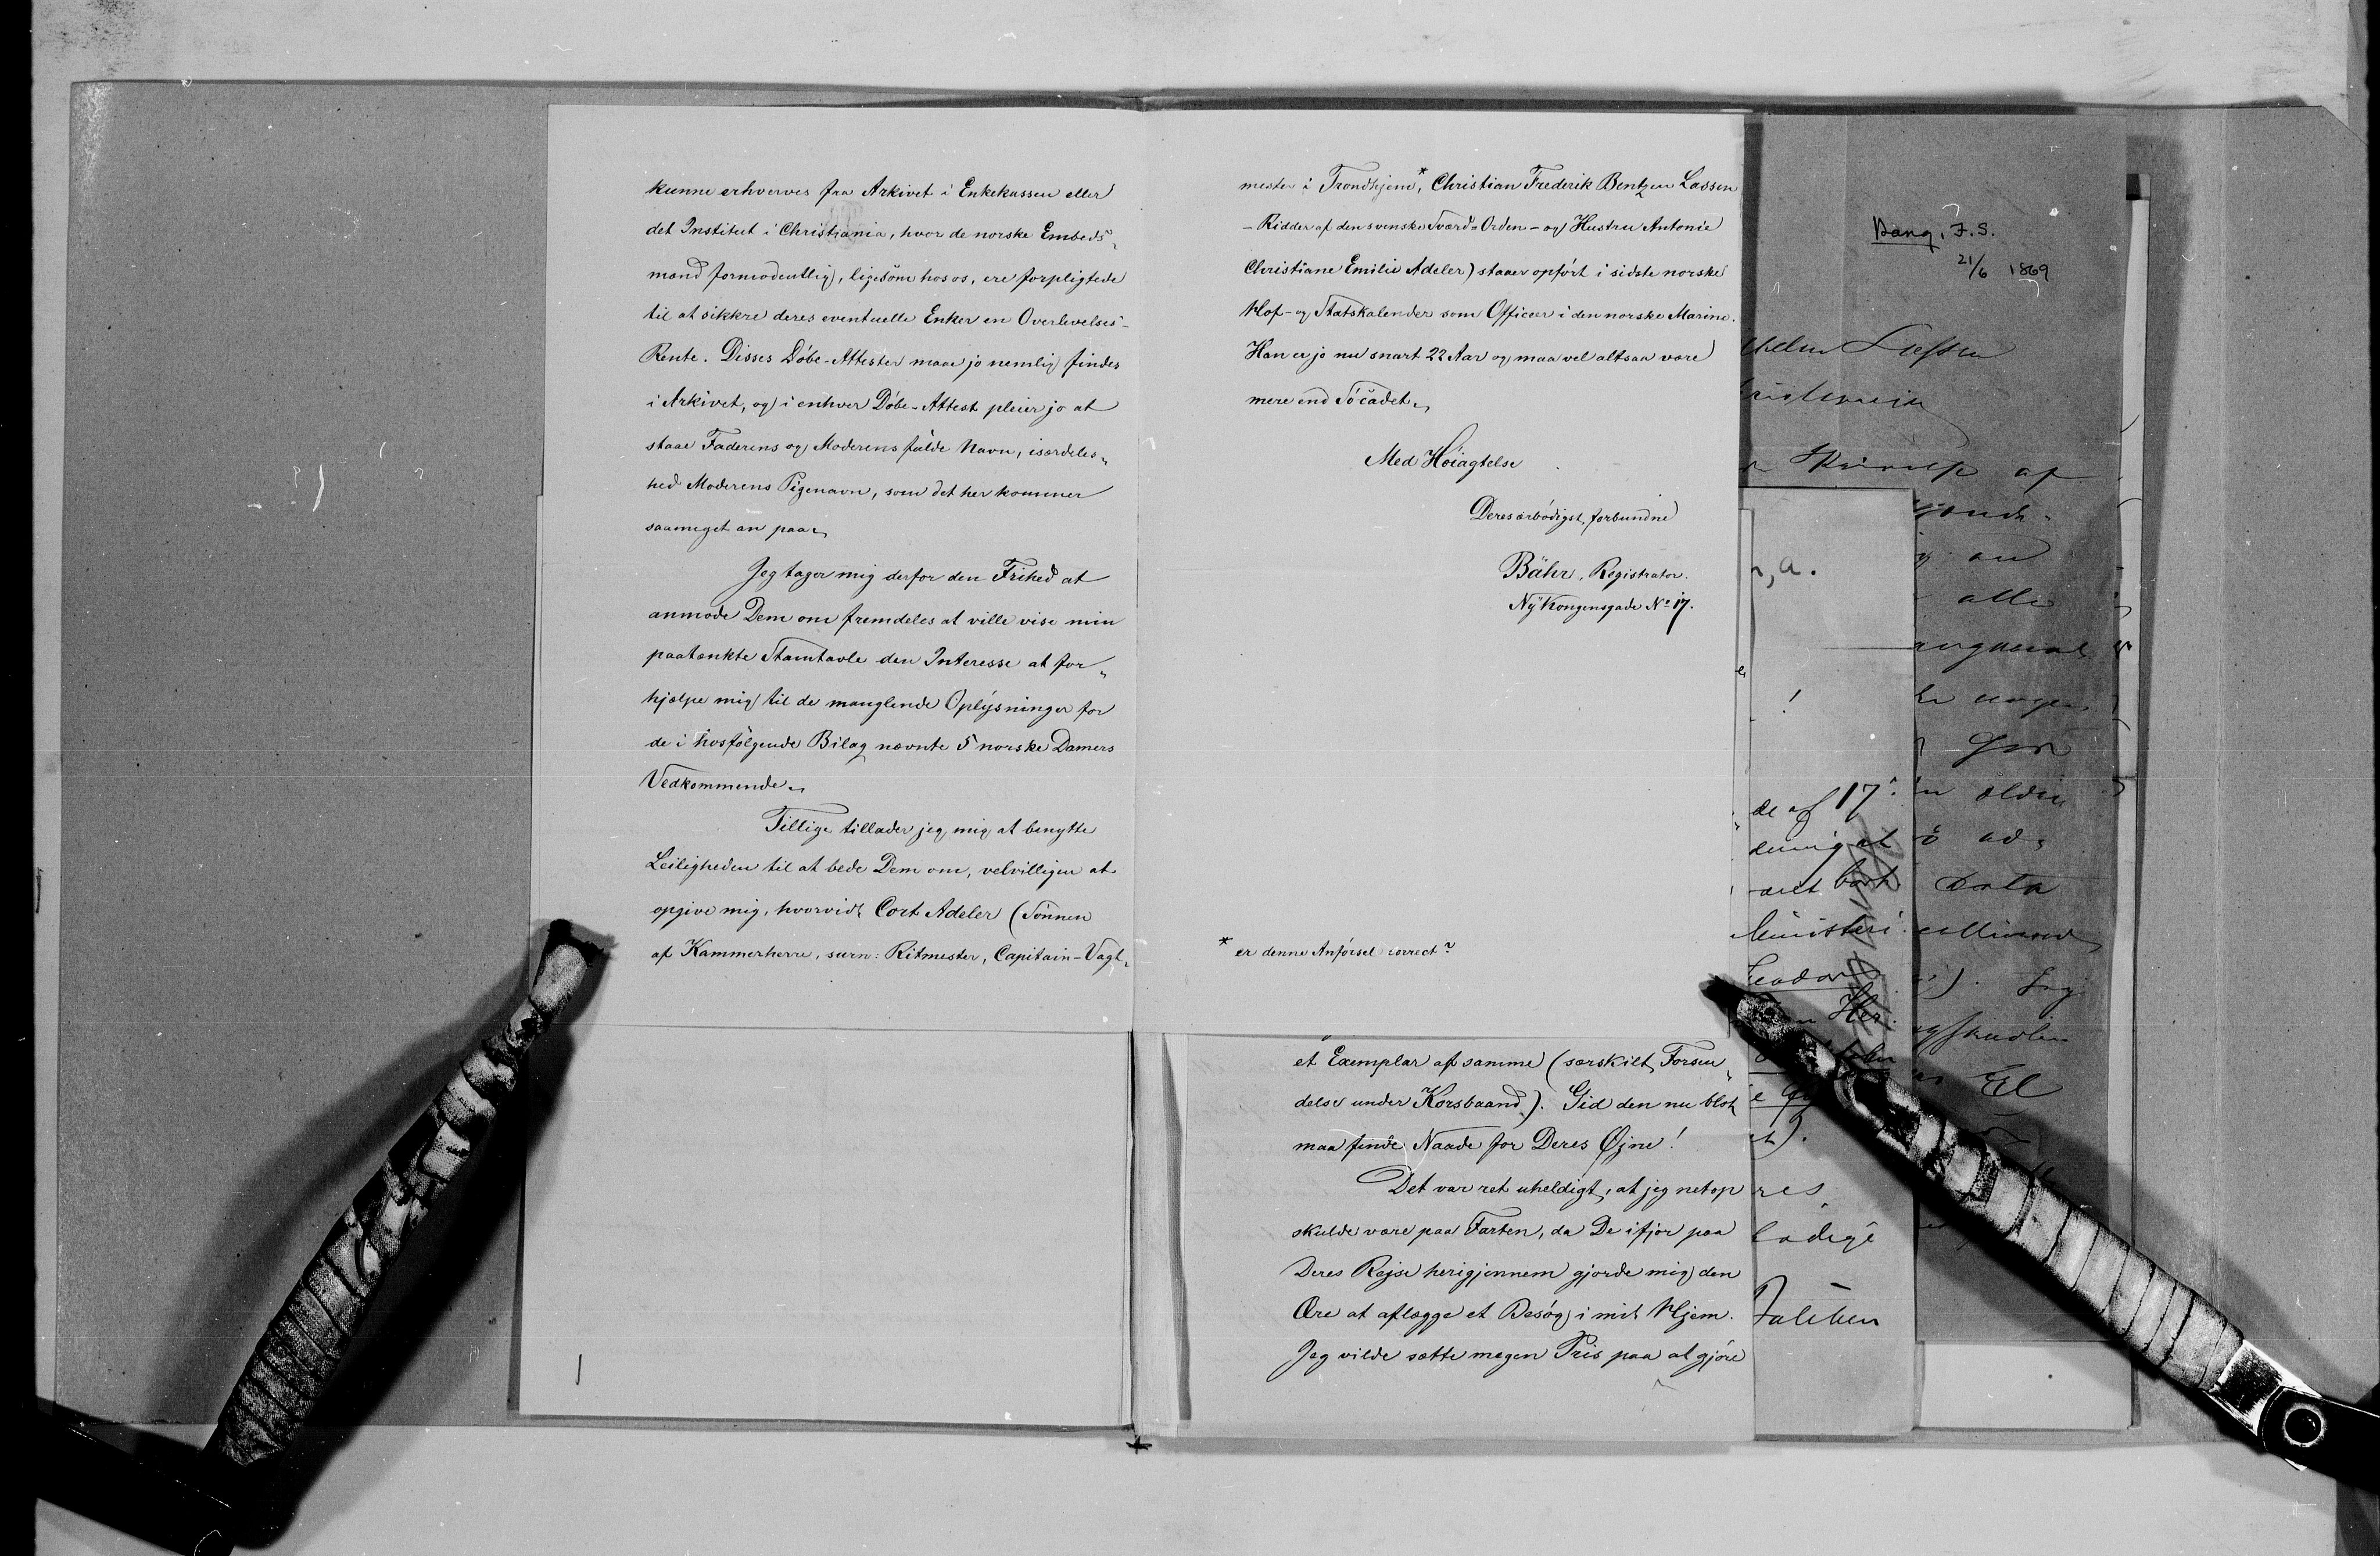 kunne erhverves fra Arkivet i Enkekassen eller
det Institut i Christiania, hvor de norske Embeds„
mænd formodentlig, ligesom hos os, ere forpligtede
til at sikkre deres eventuelle Enker en Overlevelses-
Rente. Disses Döbe-Attester maae jo nemlig findes
i Arkivet, og i enhver Döbe-Attest pleier jo at
staae Faderens og Moderens fulde Navn, isærdeles„
hed Moderens Pigenavn, som det her kommer
saameget an paa.
Jeg tager mig derfor den Frihed at
anmode Dem om fremdeles at ville vise min
paatænkte Stamtavle den Interesse at for„
hjælpe mig til de manglende Oplysninger for
de i hosfölgende Bilag nævnte 5 norske Damers
Vedkommende.
Tillige tillader jeg mig at benytte
Leiligheden til at bede Dem om, velvilligen at
opgive mig, hvorvidt Cort Adeler (Sönnen
af Kammerherre, surn: Ritmester, Capitain-Vagt„
mester i Trondhjem*, Christian Frederik Bentzen Lassen
- Ridder af den svenske Sværd-Orden - og Hustru Antonie
Christiane Emilie Adeler) staaer opfört i sidste norske
Hof- og Statskalender som Officeer i den norske Marine.
Han er jo nu snart 22 Aar og maa vel altsaa være
mere end Söcadet.
Med Höiagtelse
Deres ærbödigst forbundne
Bähr, Registrator.
Ny Kongensgade No 17.
* er denne Anförsel correct?
et Exemplar af samme (særskilt Forsen„
delse under Korsbaand). Gid den nu blot
maa finde Naade for Deres Øjne!
Det var ret uheldigt, at jeg netop
skulde være paa Farten, da De ifjor paa
Deres Rejse herigjennem gjorde mig den
Ære at aflægge et Besög i mit Hjem.
Jeg vilde sætte megen Pris paa at gjöre
Bang, F.S.
21/6 1869
af
an
alle
r, a.
!
de af 17.
Data
Her
et).
res